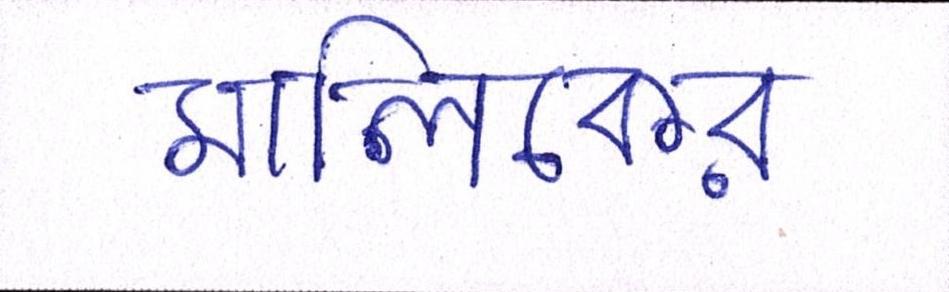 মালিকের